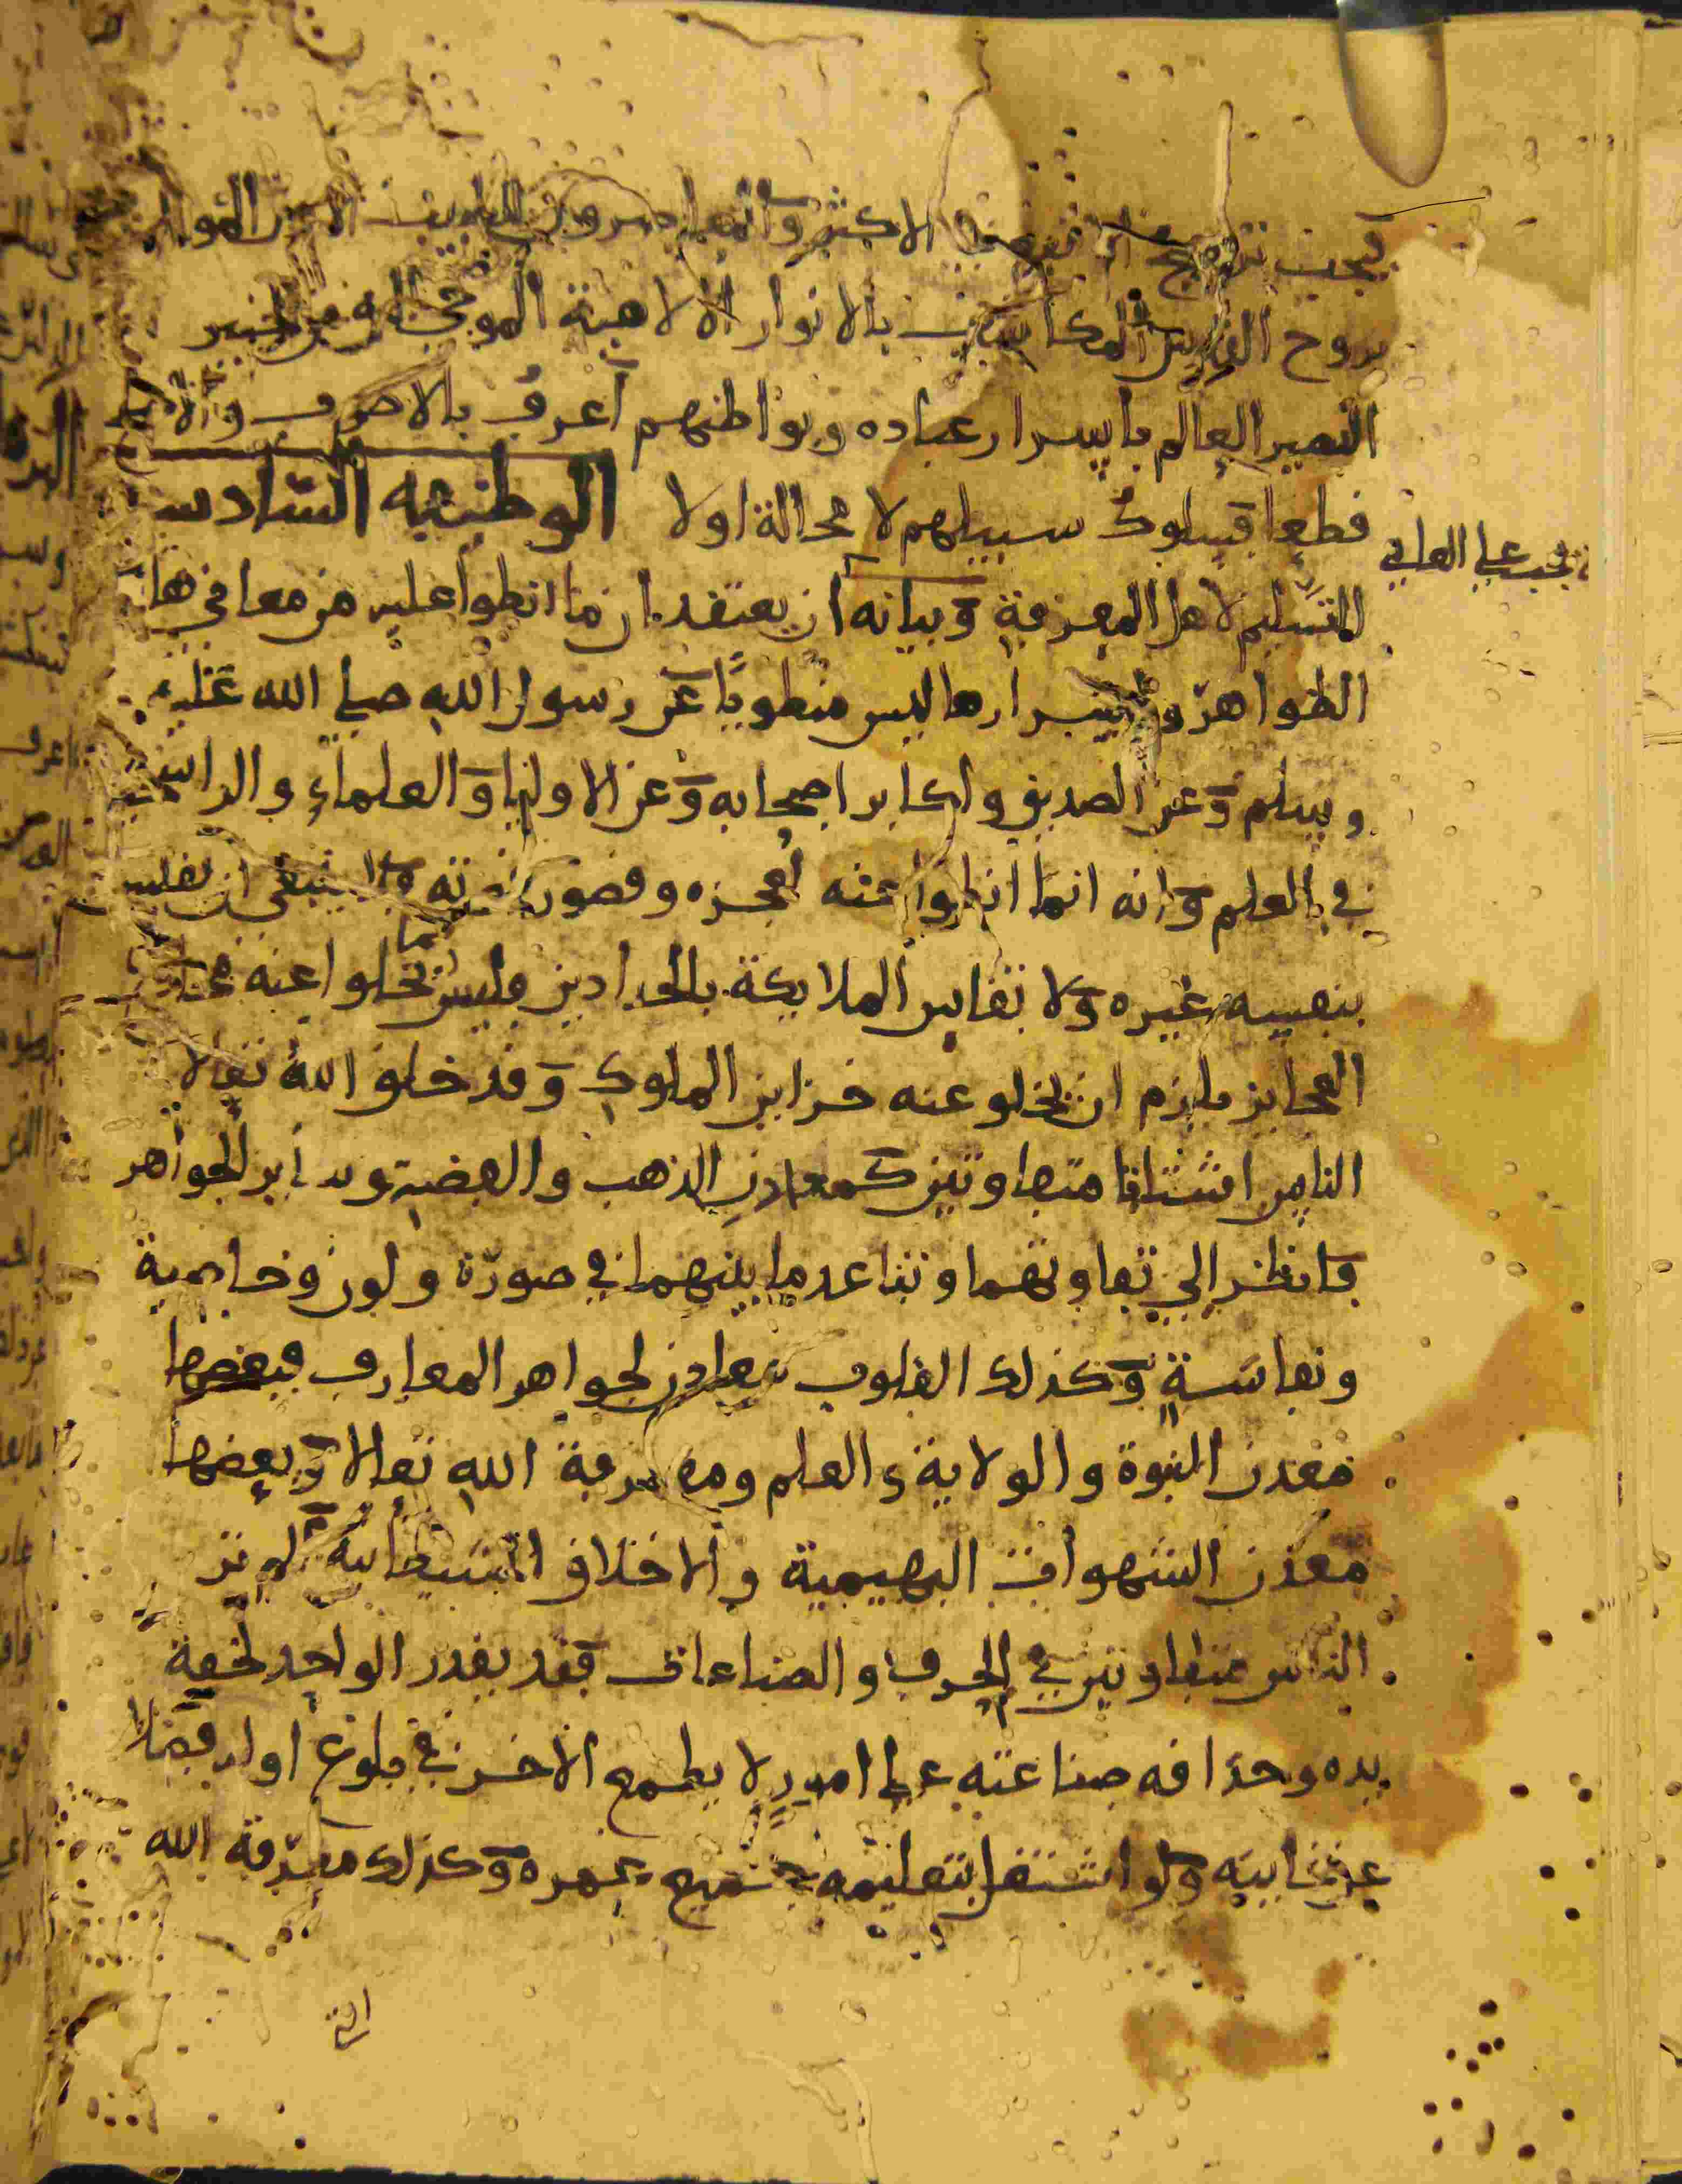 فيجب ترجيح الاكثر وانما سيد المرسلين
بروح القدس المكاشف بالانوار الالاهية الموحى اليه من الخبير
البصير العالم باسرار عباده وبواطنهم اعرف بالاصوب والاصلح
قطعا فسلوك سبيلهم لا محالة اولا الوظيفة السادس
يجب على العامي
للتسليم لاهل المعرفة وبيانه ان يعتقد ان ما انطوا عليه من معاني هاذه
الظواهر واسرارها ليس منطويا عن رسول الله صلى الله عليه
وسلم وعن الصديق واكابر اصحابه وعن الاوليا والعلماء والراسخين
في العلم وانه انما انطوا عنه لعجزه وقصور قدرته ولا ينبغي ان يقيس
بنفسه غيره ولا تقاس الملايكة بالحدادين فليس ما تخلوا عنه مخادع
العجايز يلزم ان تخلو عنه خزاين الملوك وقد خلق الله تعالا
الناس اشتاتا متفاوتين كمعادن الذهب والفضة وساير الجواهر
فانظر الي تفاوتهما وتباعد ما بينهما في صورة ولون وخاصية
ونفاسة وكذلك القلوب معادن لجواهر المعارف فبعضها
معدن النبوة والولاية والعلم ومعرفة الله تعالا وبعضها
معدن الشهوات البهيمية والاخلاق الشيطانية بل ترى
الناس متفاوتين في الحرف والصناعات فقد يقدر الواحد لخفة
يده وحذاقه صناعته على امور لا يطمع الاخر في بلوغ اوايله فضلا
عن غايته ولو اشتغل بتعليمه جميع عمره وكذلك معرفة الله